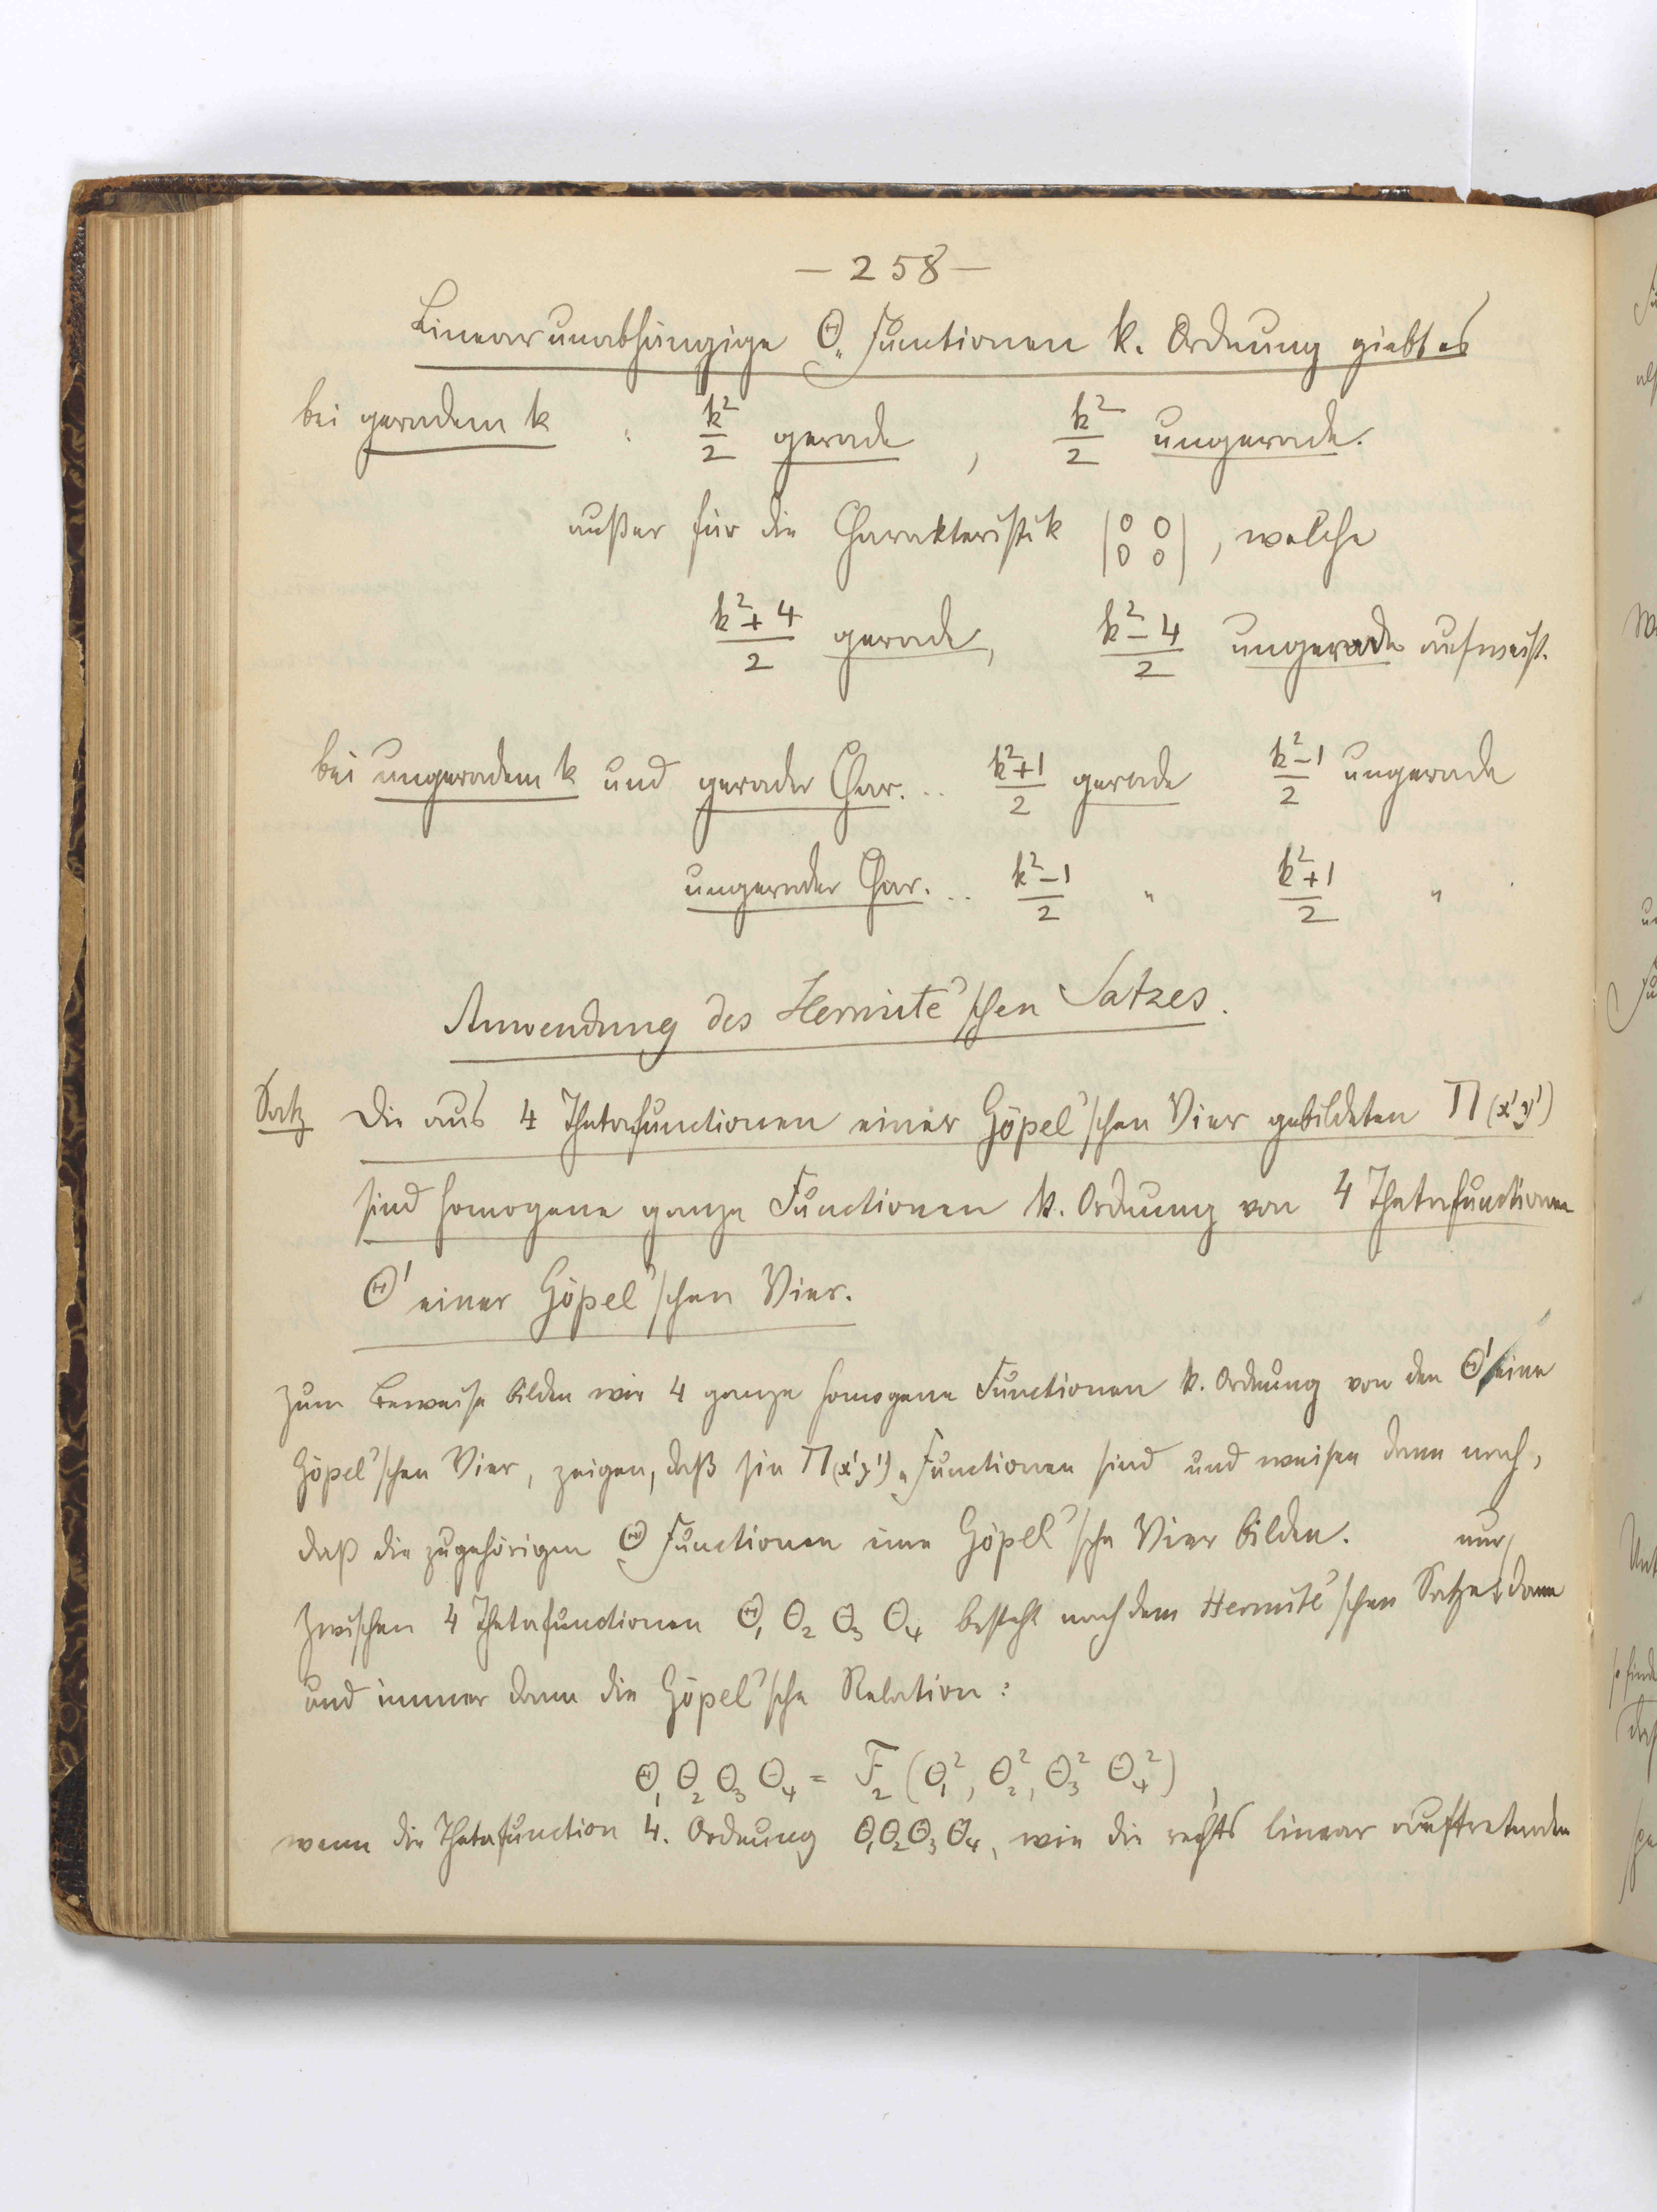 — 258 —
Linear unabhängige Θ„Functionen k. Ordnung giebt es
bei geradem k : k²/2 gerade , k²/2 ungerade.
außer für die Charakteristik |0 0 / 0 0| , welche
(k²+4)/2 gerade, (k²-4)/2 ungerade aufweist.
bei ungeradem k und gerader Char. .. (k²+1)/2 gerade (k²-1)/2 ungerade
ungerader Char. .. (k²-1)/2 " (k²+1)/2 "
Anwendung des Hermite'schen Satzes.
Satz Die aus 4 Thetafunctionen einer Göpel'schen Vier gebildeten Π(x'y')
sind homogene ganze Functionen k. Ordnung von 4 Thetafunctionen
Θ' einer Göpel'schen Vier.
Zum Beweise bilden wir 4 ganze homogene Functionen k. Ordnung von den Θ' eine
Göpel'schen Vier, zeigen, daß sie Π(x'y')„Functionen sind und weisen dann nach,
daß die zugehörigen Θ Functionen eine Göpel'sche Vier bilden.
nur
Zwischen 4 Thetafunctionen Θ₁ Θ₂ Θ₃ Θ₄ besteht nach dem Hermite'schen Satze dann
und immer dann die Göpel'sche Relation:
Θ₁ Θ₂ Θ₃ Θ₄ = F₂ (Θ₁², Θ₂², Θ₃² Θ₄²) ,
wenn die Thetafunction 4. Ordnung Θ₁Θ₂Θ₃Θ₄, wie die rechts linear auftretenden